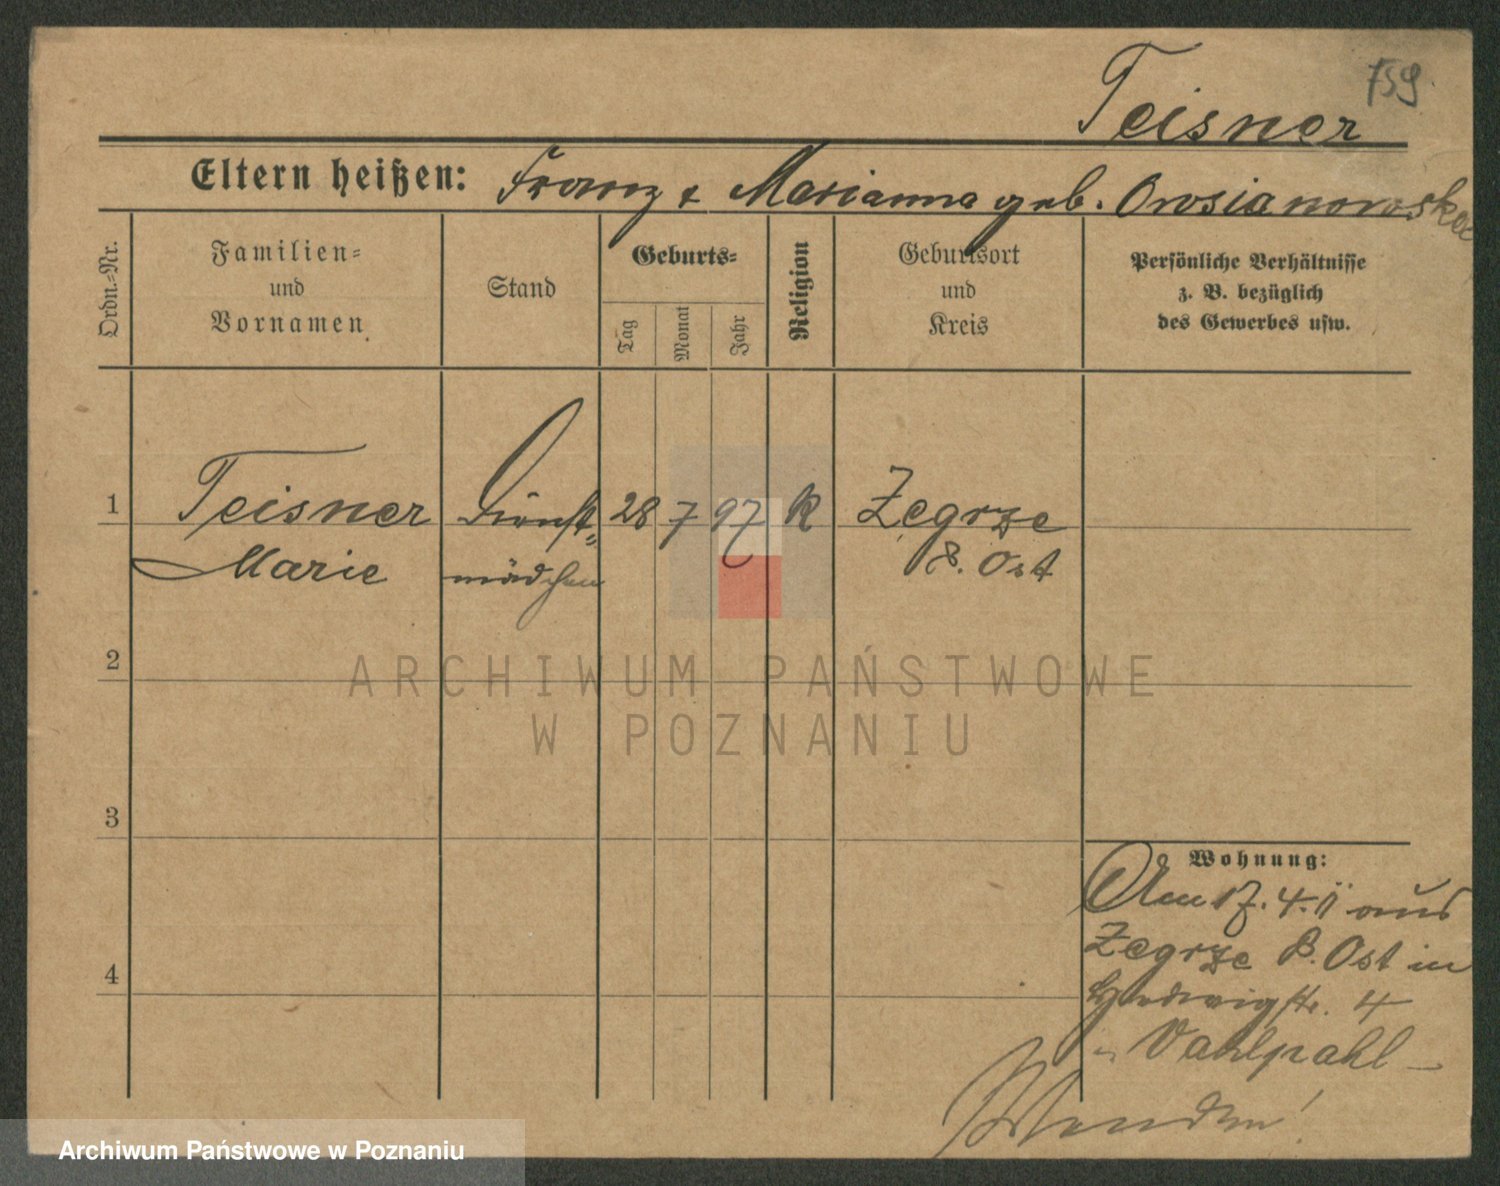 759
Teisner
Eltern heißen: Franz & Marianna geb.
Ordn.-Nr.
Familien-
und
Vornamen
Stand
Geburts-
Tag
Monat
Jahr
Religion
Geburtsort
und
Kreis
Persönliche Verhältnisse
z. B. bezüglich
des Gewerbes usw.
1 Teisner Dienst= 28 7 97 k Zegrze
Marie mädchen P. Ost
2
3
4
Wohnung:
Am 17. 4. 11 aus
Zegrze P. Ost in
Hedwigstr. 4
Wenden!
ARCHIWUM PAŃSTWOWE
W POZNANIU
Archiwum Państwowe w Poznaniu